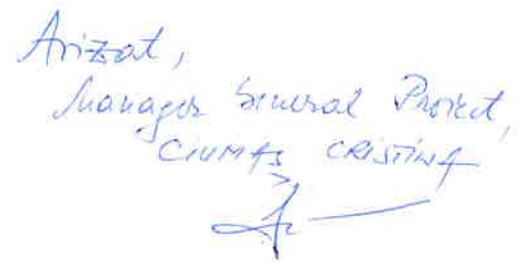 Avizat,
Manager General Proiect,
CIUMAȘ CRISTINA